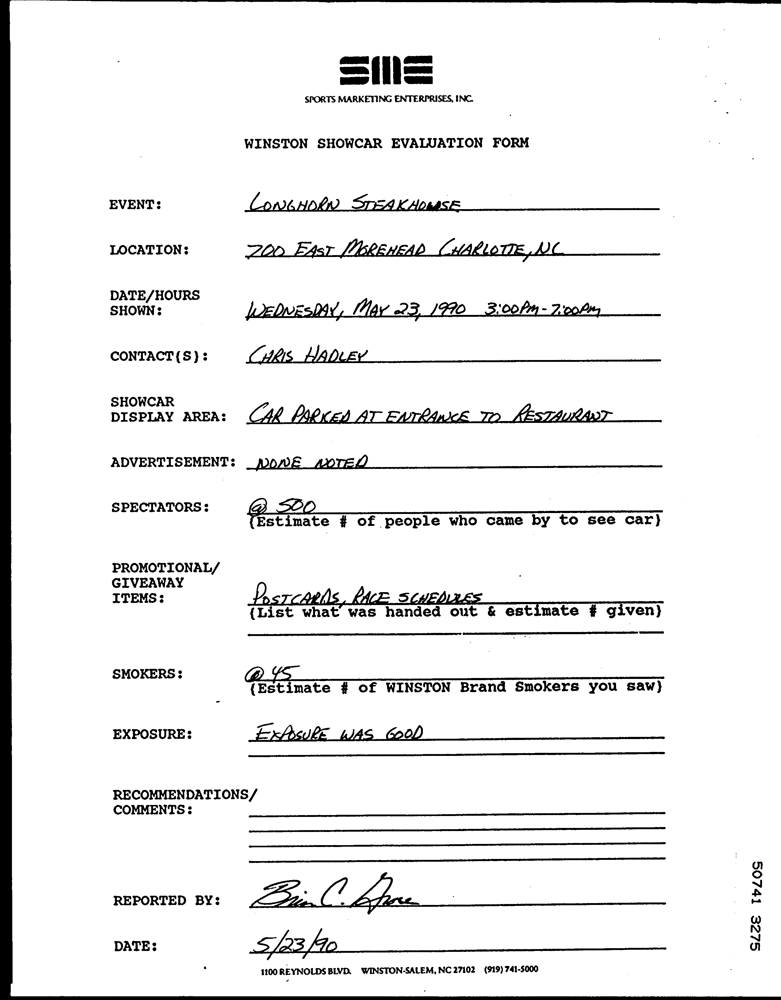 SME
SPORTS MARKETING ENTERPRISES, INC.
WINSTON SHOWCAR EVALUATION FORM
EVENT: LONGHORN STEAKHOUSE
LOCATION: 700 EAST MOREHEAD CHARLOTTE, NC
DATE/HOURS
SHOWN: WEDNESDAY, MAY 23, 1990 3:00PM-7:00PM
CONTACT(S): CHRIS HADLEY
SHOWCAR
DISPLAY AREA: CAR PARKED AT ENTRANCE TO RESTAURANT
ADVERTISEMENT: NONE NOTED
SPECTATORS: @ 500
(Estimate # of people who came by to see car)
PROMOTIONAL/
GIVEAWAY
ITEMS: POSTCARDS, RACE SCHEDULES
(List what was handed out & estimate # given)
SMOKERS: @ 45
(Estimate # of WINSTON Brand Smokers you saw)
EXPOSURE: EXPOSURE WAS GOOD
RECOMMENDATIONS/
COMMENTS:
REPORTED BY: Brian C.
DATE: 5/23/90
1100 REYNOLDS BLVD. WINSTON-SALEM, NC 27102 (919) 741-5000
50741 3275